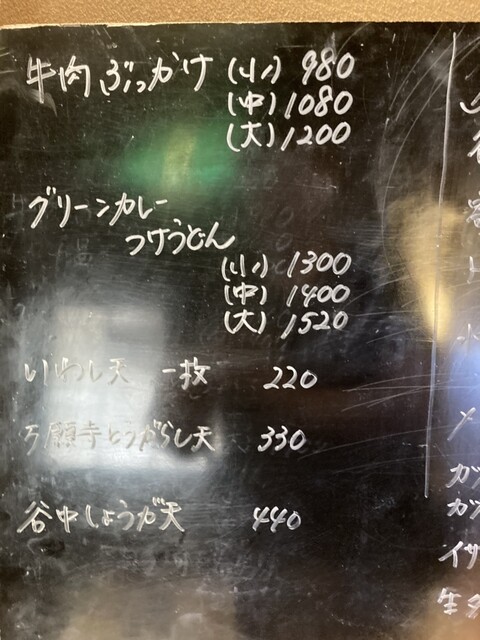 牛肉ぶっかけ (小) 980
(中) 1080
(大) 1200
グリーンカレー
つけうどん
(小) 1300
(中) 1400
(大) 1520
いわし天 一枚 220
万願寺とうがらし天 330
谷中しょうが天 440